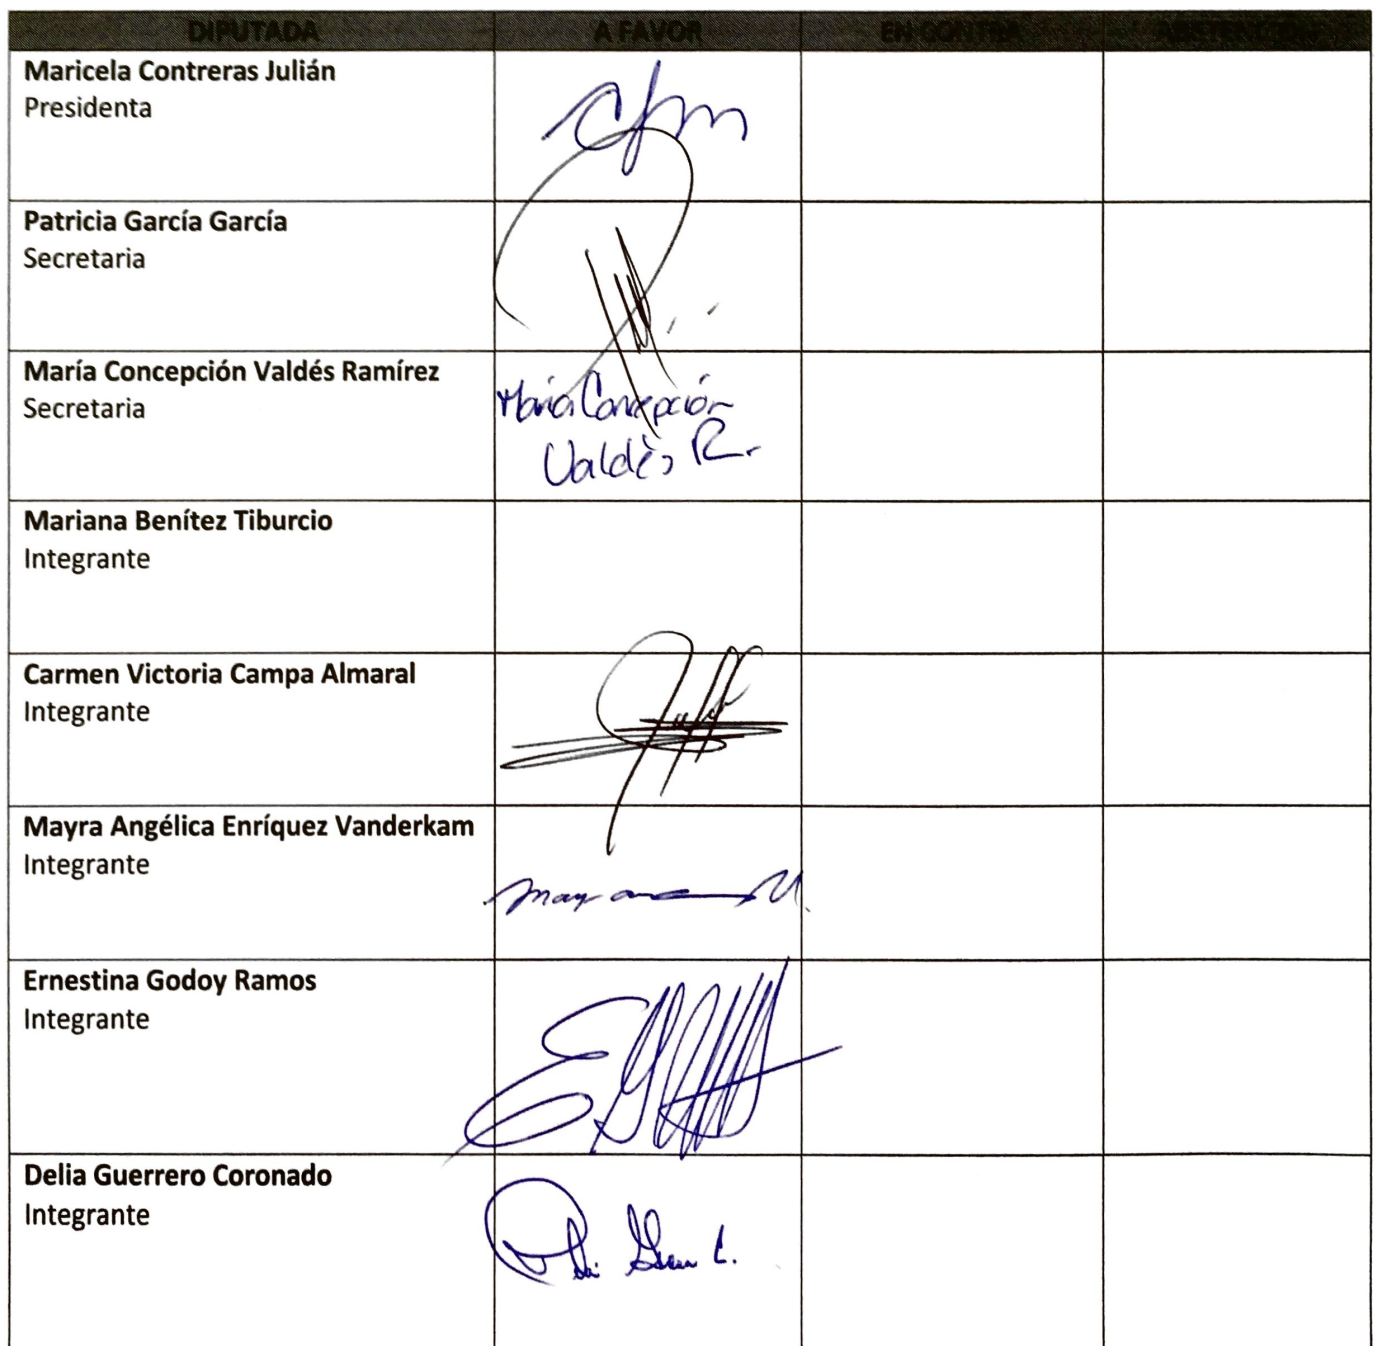 DIPUTADA A FAVOR EN CONTRA ABSTENCIÓN
Maricela Contreras Julián
Presidenta
Patricia García García
Secretaria
María Concepción Valdés Ramírez
Secretaria
María Concepción
Valdés R.
Mariana Benítez Tiburcio
Integrante
Carmen Victoria Campa Almaral
Integrante
Mayra Angélica Enríquez Vanderkam
Integrante
Ernestina Godoy Ramos
Integrante
Delia Guerrero Coronado
Integrante